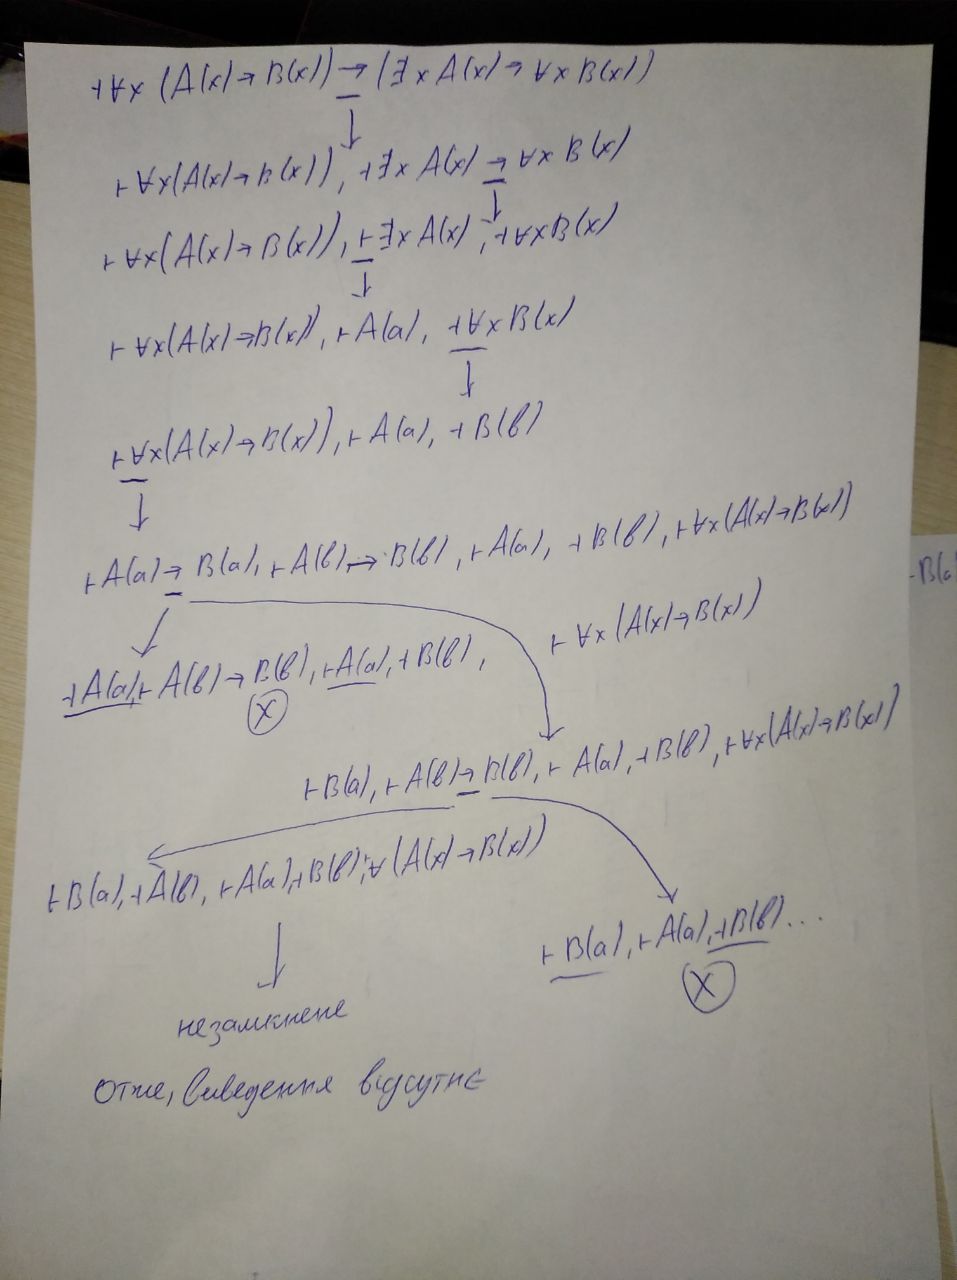 ⊣∀x (A(x)→B(x))→(∃x A(x)→∀x B(x))
⊢∀x(A(x)→B(x)), ⊣∃x A(x)→∀x B(x)
⊢∀x(A(x)→B(x)), ⊢∃x A(x), ⊣∀xB(x)
⊢∀x(A(x)→B(x)), ⊢A(a), ⊣∀x B(x)
⊢∀x(A(x)→B(x)), ⊢A(a), ⊣B(b)
⊢A(a)→B(a), ⊢A(b)→B(b), ⊢A(a), ⊣B(b), ⊢∀x(A(x)→B(x))
-B(a)
⊣A(a), ⊢A(b)→B(b), ⊢A(a), ⊣B(b), ⊢∀x(A(x)→B(x))
X
⊢B(a), ⊢A(b)→B(b), ⊢A(a), ⊣B(b), ⊢∀x(A(x)→B(x))
⊢B(a), ⊣A(b), ⊢A(a), ⊣B(b), ⊢∀(A(x)→B(x))
⊢B(a), ⊢A(a), ⊣B(b)...
X
незамкнене
Отже, виведення відсутнє